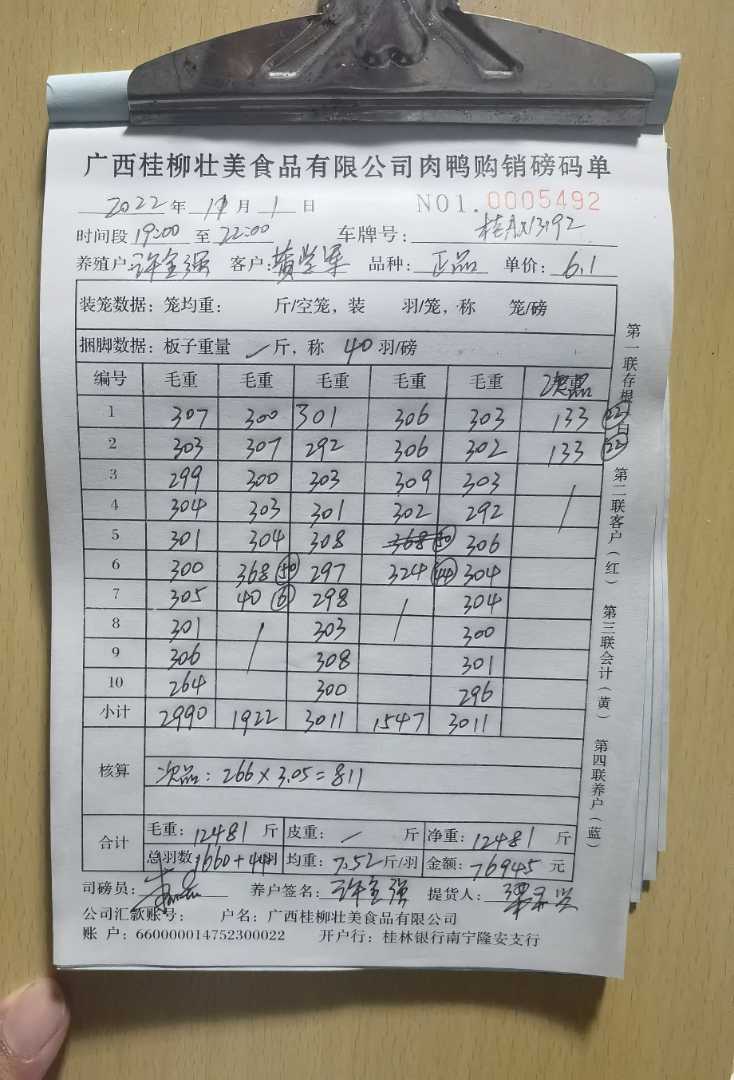 广西桂柳壮美食品有限公司肉鸭购销磅码单
2022 年 11 月 1 日 NO1. 0005492
时间段 19:00 至 22:00 车牌号: 13192
养殖户 许宝强 客户: 黄学军 品种: 正品 单价: 6.1
装笼数据: 笼均重: 斤/空笼, 装 羽/笼, 称 笼/磅
捆脚数据: 板子重量 / 斤, 称 40 羽/磅
编号 毛重 毛重 毛重 毛重 毛重 次品
1 307 300 301 306 303 133 (22)
2 303 307 292 306 302 133 (22)
3 299 300 303 309 303 /
4 304 303 301 302 292
5 301 304 308 368 (50) 306
6 300 368 (50) 297 324 (44) 304
7 305 40 (6) 298 / 304
8 301 / 303 300
9 306 308 301
10 264 300 296
小计 2990 1922 3011 1547 3011
核算 次品: 266 × 3.05 = 811
合计 毛重: 12481 斤 皮重: / 斤 净重: 12481 斤
总羽数 1660+44羽 均重: 7.52 斤/羽 金额: 76945 元
司磅员: 养户签名: 许宝强 提货人:
公司汇款账号: 户名: 广西桂柳壮美食品有限公司
账 户: 660000014752300022 开户行: 桂林银行南宁隆安支行
第一联存根(白)
第二联客户(红)
第三联会计(黄)
第四联养户(蓝)